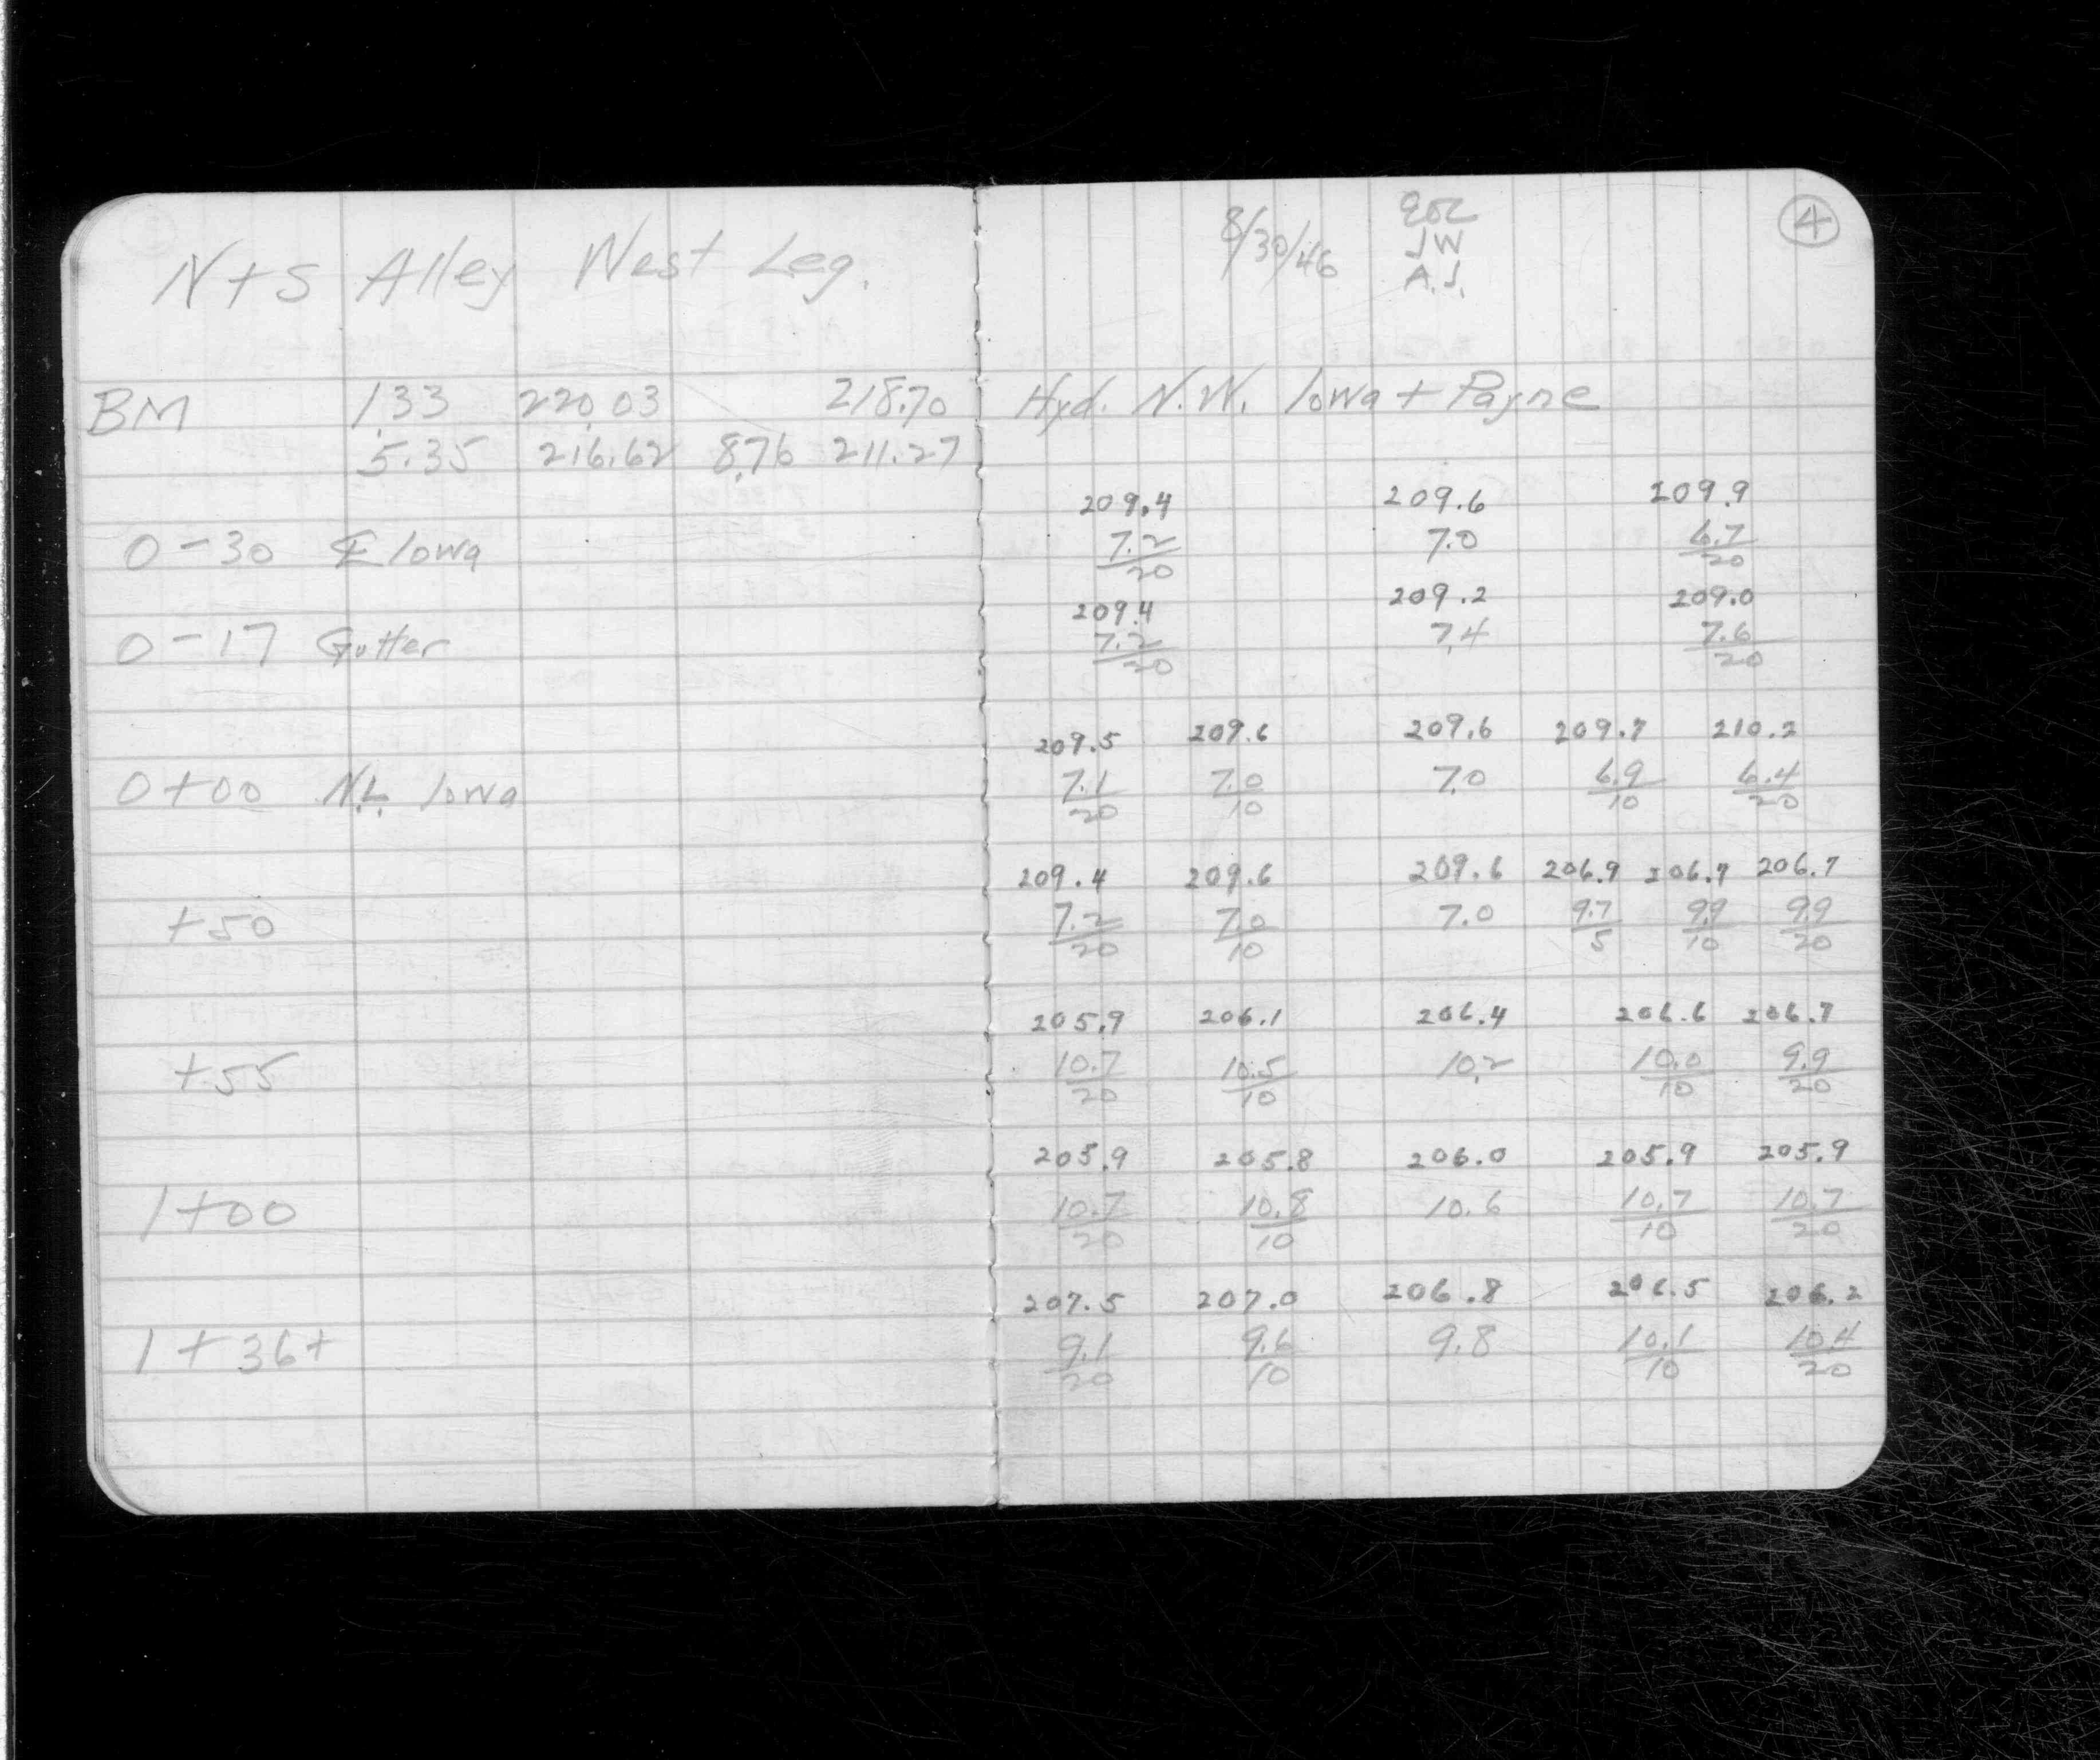 N+S Alley West Leg.
8/30/46
JW
A.J.
4
BM 1.33 220.03 218.70 Hyd. N.W. Iowa + Payne
5.35 216.62 8.76 211.27
209.4 209.6 209.9
0-30 ℄ Iowa 7.2/20 7.0 6.7/20
209.4 209.2 209.0
0-17 Gutter 7.2/20 7.4 7.6/20
209.5 209.6 209.6 209.7 210.2
0+00 N.L. Iowa 7.1/20 7.0/10 7.0 6.9/10 6.4/20
209.4 209.6 209.6 206.9 206.7 206.7
+50 7.2/20 7.0/10 7.0 9.7/5 9.9/10 9.9/20
205.9 206.1 206.4 206.6 206.7
+55 10.7/20 10.5/10 10.2 10.0/10 9.9/20
205.9 205.8 206.0 205.9 205.9
1+00 10.7/20 10.8/10 10.6 10.7/10 10.7/20
207.5 207.0 206.8 206.5 206.2
1+36+ 9.1/20 9.6/10 9.8 10.1/10 10.4/20